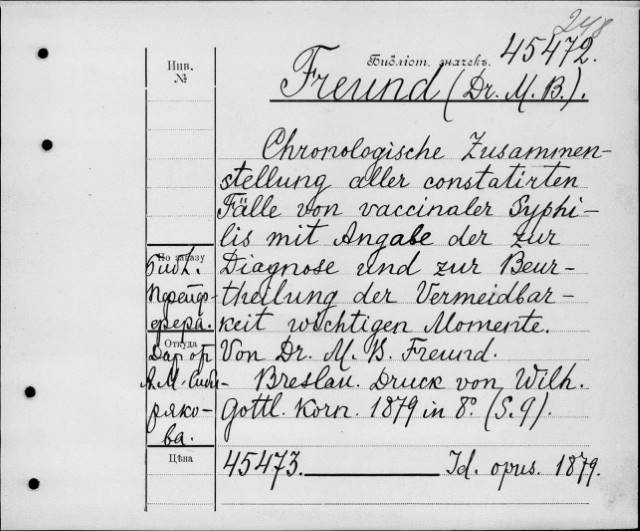 248
Инв.
№
Библіот. значекъ. 45472.
Freund (Dr. M. B.).
Chronologische Zusammen-
stellung aller constatirten
Fälle von vaccinaler Syphi-
lis mit Angabe der zur
Diagnose und zur Beur-
theilung der Vermeidbar-
keit wichtigen Momente.
Von Dr. M. B. Freund.
Breslau. Druck von Wilh.
Gottl. Korn. 1879 in 8º (S. 9).
По заказу
Библ.
Пфейф-
фера.
Откуда
Дар от
А. М. Сиби-
ряко-
ва.
Цѣна
45473. Id. opus. 1879.